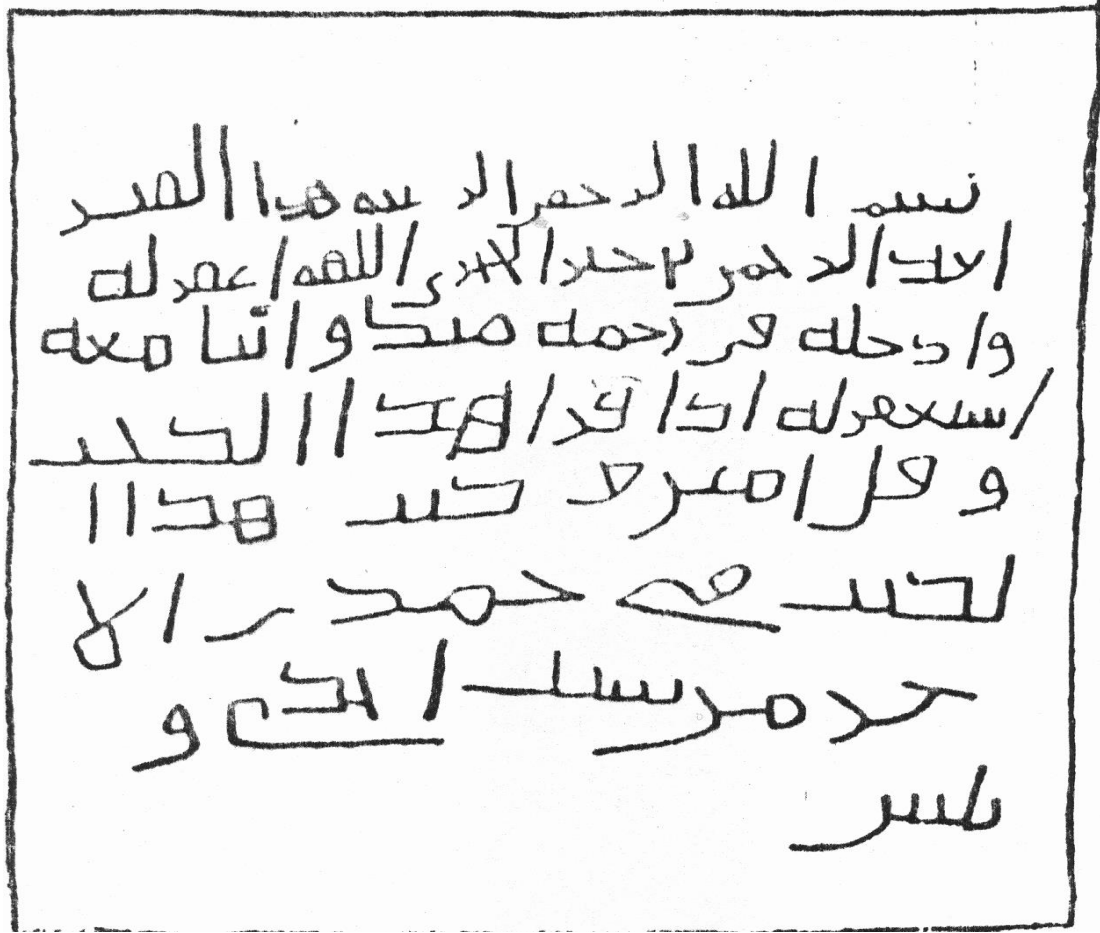 بسم الله الرحمن الرحيم هذا القبر
لعبد الرحمن بن خير الحجري اللهم اغفر له
وادخله في رحمة منك واتنا معه
استغفر له اذا قرا هذا الكتب
وقل امين وكتب هذا ا
لكتب في جمدي الا
خر من سنت احدي و
ثلثين